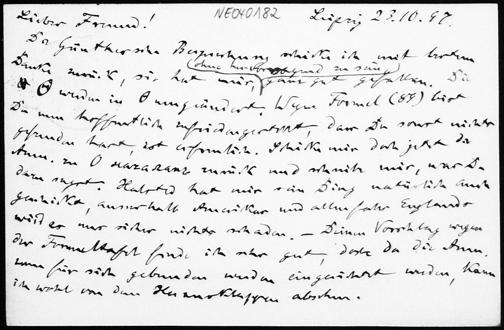 NE040182
Lieber Freund! Leipzig 23.10.97.
Die Günther'sche Besprechung schicke ich mit bestem
Danke zurück, sie hat mir, (ohne hervorragend zu sein) ganz gut gefallen. Die
Θ werden in Θ umgeändert. Wegen Formel (87) bist
Du nun hoffentlich zufriedengestellt, dass Du sonst nichts
gefunden hast, ist erfreulich. Schicke mir doch jetzt die
Anm. zu zurück und schreibe mir, was Du
dazu sagst. Halsted hat mir sein Ding natürlich auch
geschickt, ausserhalb Amerikas und allenfalls Englands
wird es nur sicher nichts schaden. – Deinen Vorschlag wegen
der Formeltafel finde ich sehr gut, doch da die Anm.
nun für sich gebunden werden eingerichtet werden, kann
ich wohl von dem absehen.